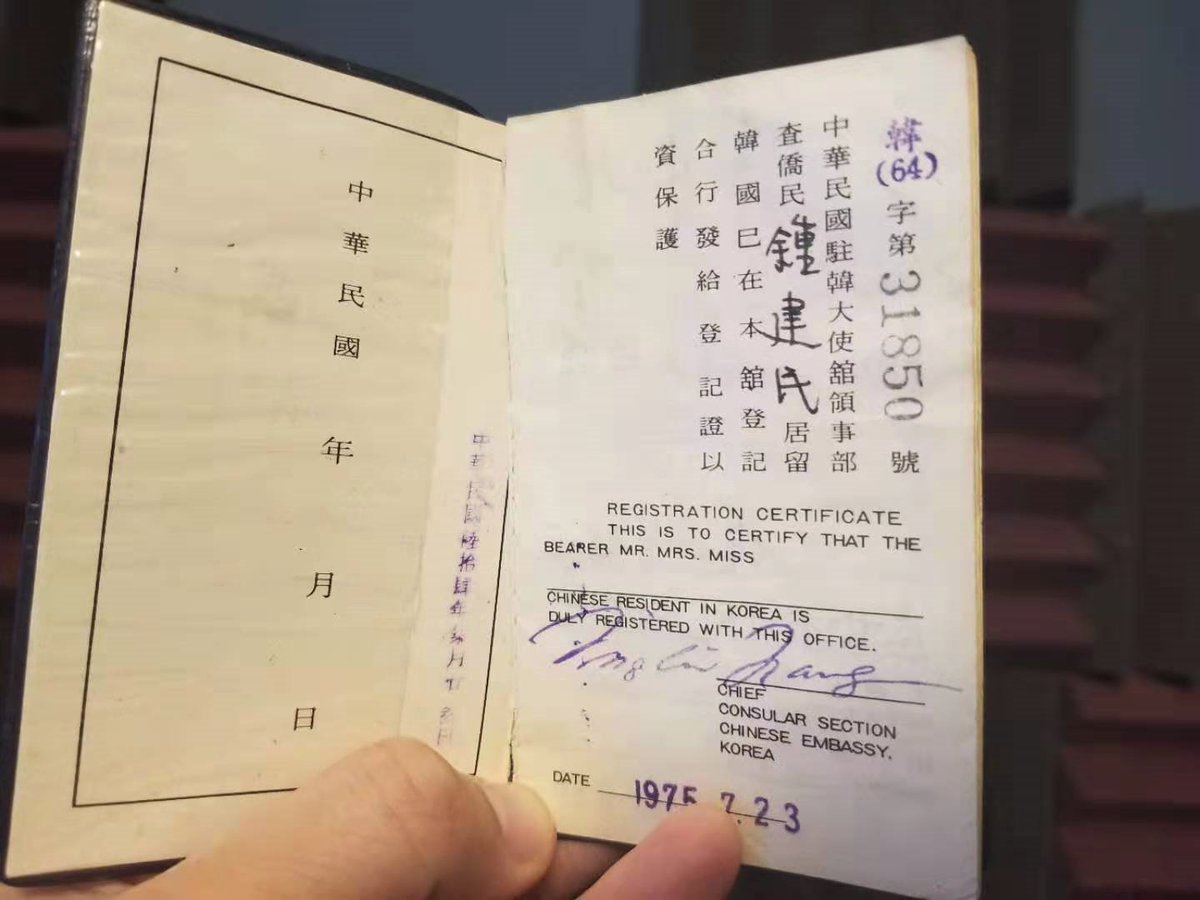 中華民國年月日
中華民國陸拾肆年
韓(64)字第31850號
中華民國駐韓大使舘領事部
査僑民鍾建民居留
韓國巳在本舘登記
合行發給登記證以
資保護
REGISTRATION CERTIFICATE
THIS IS TO CERTIFY THAT THE
BEARER MR. MRS. MISS
CHINESE RESIDENT IN KOREA IS
DULY REGISTERED WITH THIS OFFICE.
CHIEF
CONSULAR SECTION
CHINESE EMBASSY,
KOREA
DATE 1975 7.23